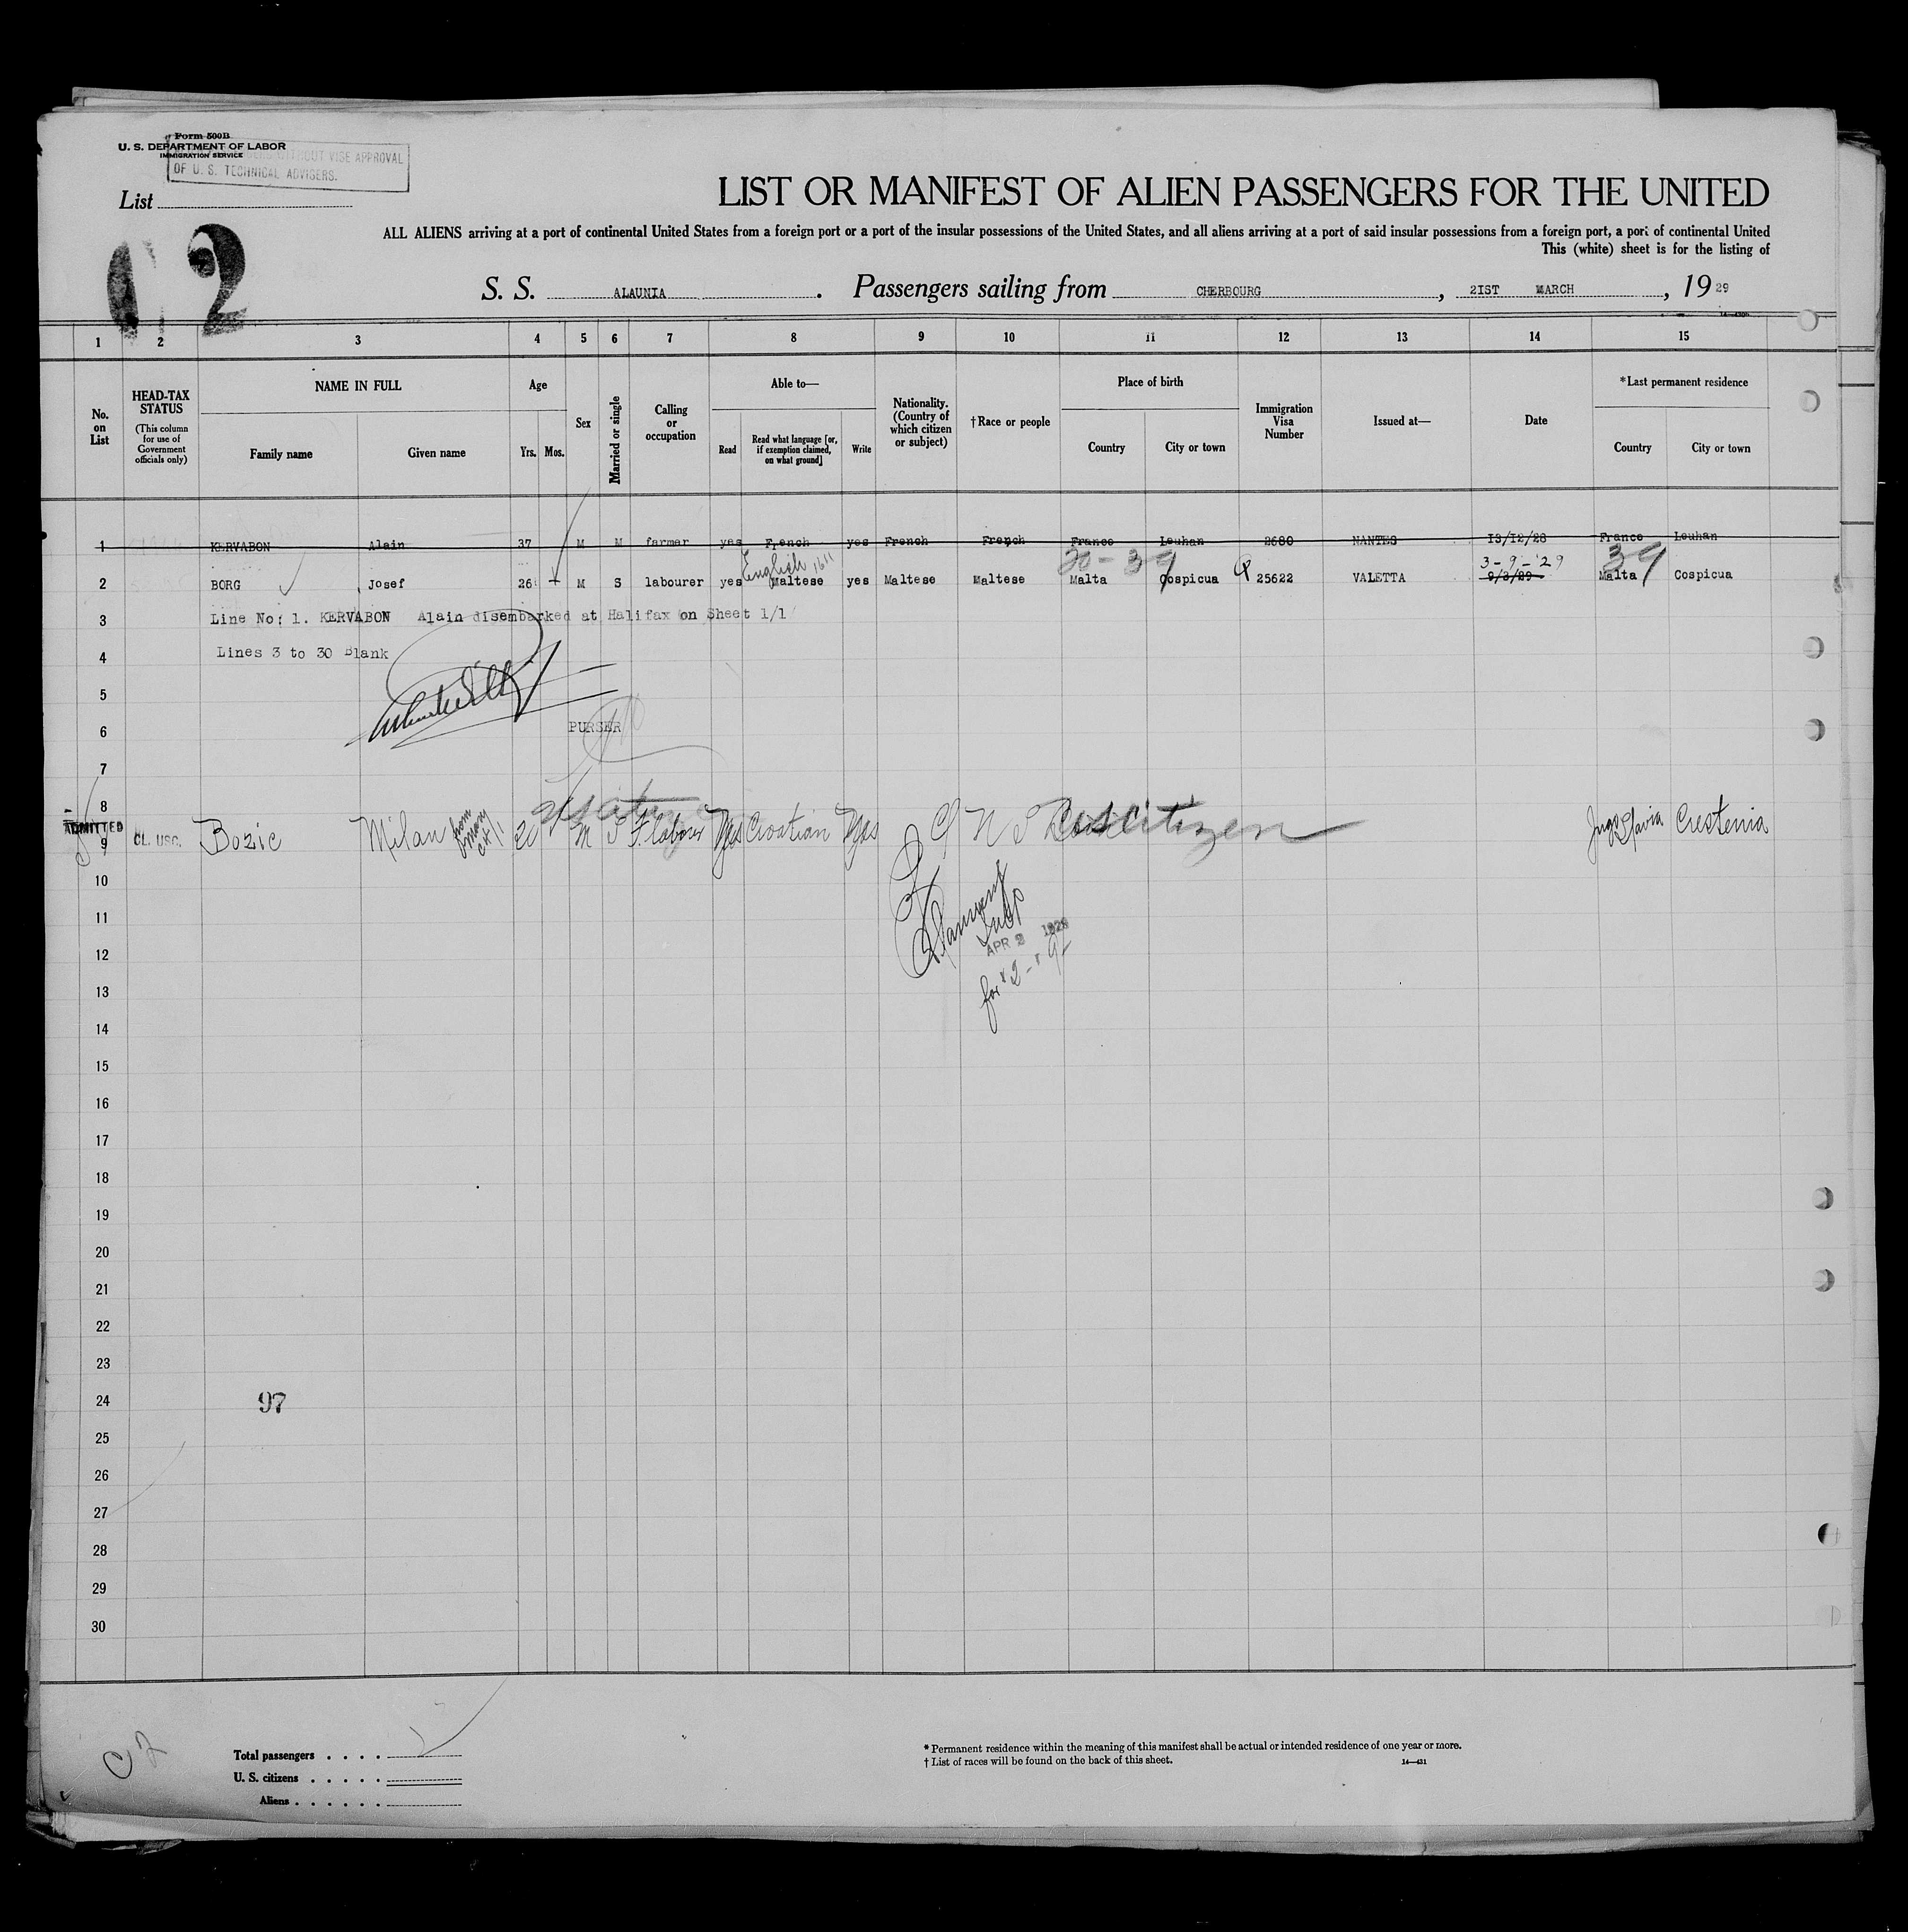 Form 500B
U. S. DEPARTMENT OF LABOR
IMMIGRATION SERVICE
WITHOUT VISE APPROVAL
OF U. S. TECHNICAL ADVISERS.
List
2
LIST OR MANIFEST OF ALIEN PASSENGERS FOR THE UNITED
ALL ALIENS arriving at a port of continental United States from a foreign port or a port of the insular possessions of the United States, and all aliens arriving at a port of said insular possessions from a foreign port, a port of continental United
This (white) sheet is for the listing of
S. S. ALAUNIA . Passengers sailing from CHERBOURG , 21ST MARCH , 19 29
1 2 3 4 5 6 7 8 9 10 11 12 13 14 15
No. on List
HEAD-TAX STATUS
(This column for use of Government officials only)
NAME IN FULL
Family name Given name
Age
Yrs. Mos.
Sex
Married or single
Calling or occupation
Able to—
Read Read what language [or, if exemption claimed, on what ground] Write
Nationality. (Country of which citizen or subject)
†Race or people
Place of birth
Country City or town
Immigration Visa Number
Issued at—
Date
*Last permanent residence
Country City or town
1 KERVABON Alain 37 M M farmer yes French yes French French France Leuhan 2680 NANTES 13/12/28 France Leuhan
English 1611 30-39 3-9-'29 39
2 BORG Josef 26 M S labourer yes Maltese yes Maltese Maltese Malta Cospicua 25622 VALETTA 9/3/29 Malta Cospicua
3 Line No: 1. KERVABON Alain disembarked at Halifax on Sheet 1/1
4 Lines 3 to 30 Blank
5
6 PURSER
7
8
ADMITTED
9 CL. USC. Bozic Milan from 20 M S F. labour Yes Croatian Yes U S citizen Jugo Slavia Crestenia
10
11
APR 2 1929
12
for
13
14
15
16
17
18
19
20
21
22
23
24 97
25
26
27
28
29
30
Total passengers . . . .
U. S. citizens . . . . .
Aliens . . . . . .
* Permanent residence within the meaning of this manifest shall be actual or intended residence of one year or more.
† List of races will be found on the back of this sheet. 14—431